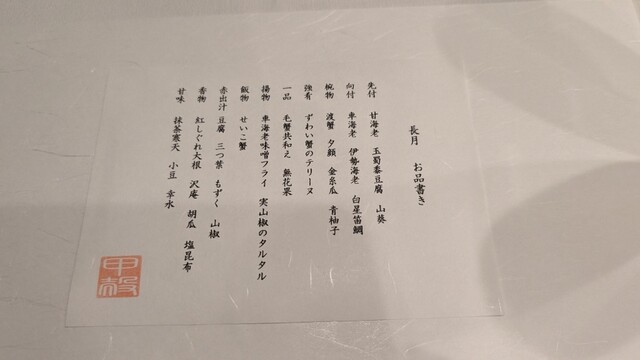 長月 お品書き
先付 甘海老 玉蜀黍豆腐 山葵
向付 車海老 伊勢海老 白星笛鯛
椀物 渡蟹 夕顔 金糸瓜 青柚子
強肴 ずわい蟹のテリーヌ
一品 毛蟹共和え 無花果
揚物 車海老味噌フライ 実山椒のタルタル
飯物 せいこ蟹
赤出汁 豆腐 三つ葉 もずく 山椒
香物 紅しぐれ大根 沢庵 胡瓜 塩昆布
甘味 抹茶寒天 小豆 幸水
甲殻